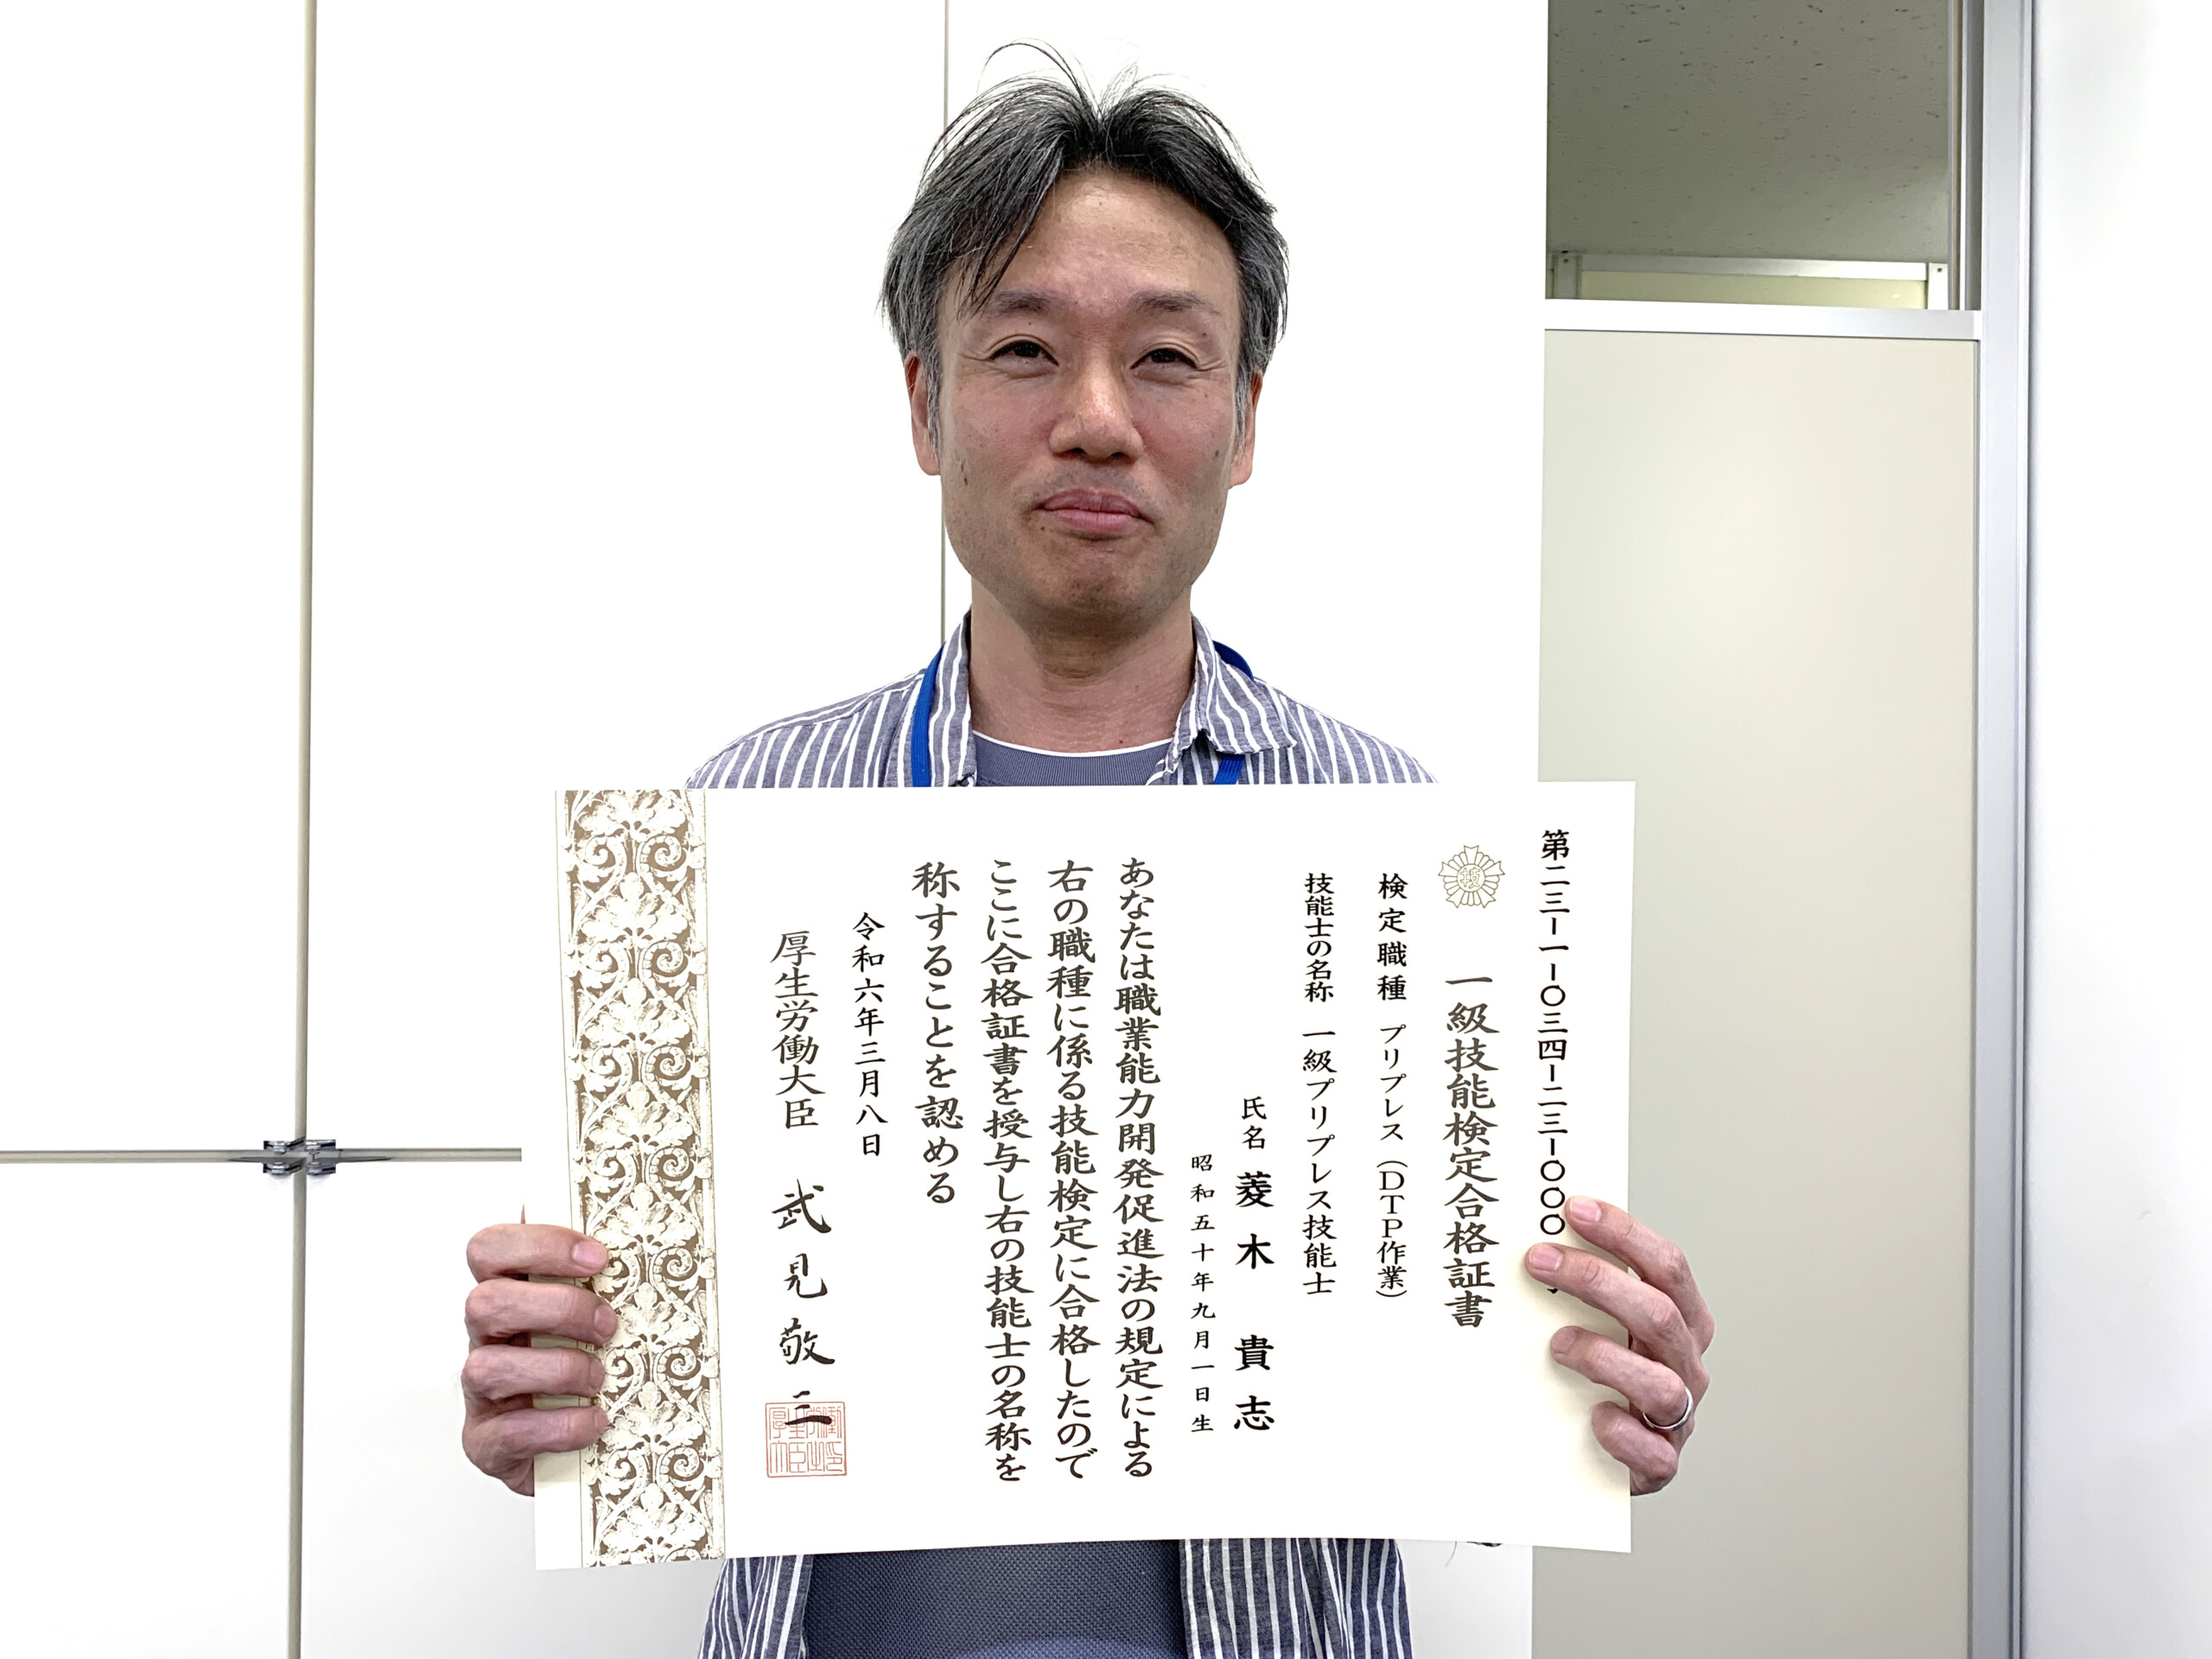 第二三ー一ー〇三四ー二三ー〇〇〇
一級技能検定合格証書
検定職種 プリプレス（ＤＴＰ作業）
技能士の名称 一級プリプレス技能士
氏名 菱木 貴志
昭和五十年九月一日生
あなたは職業能力開発促進法の規定による
右の職種に係る技能検定に合格したので
ここに合格証書を授与し右の技能士の名称を
称することを認める
令和六年三月八日
厚生労働大臣 武見敬三